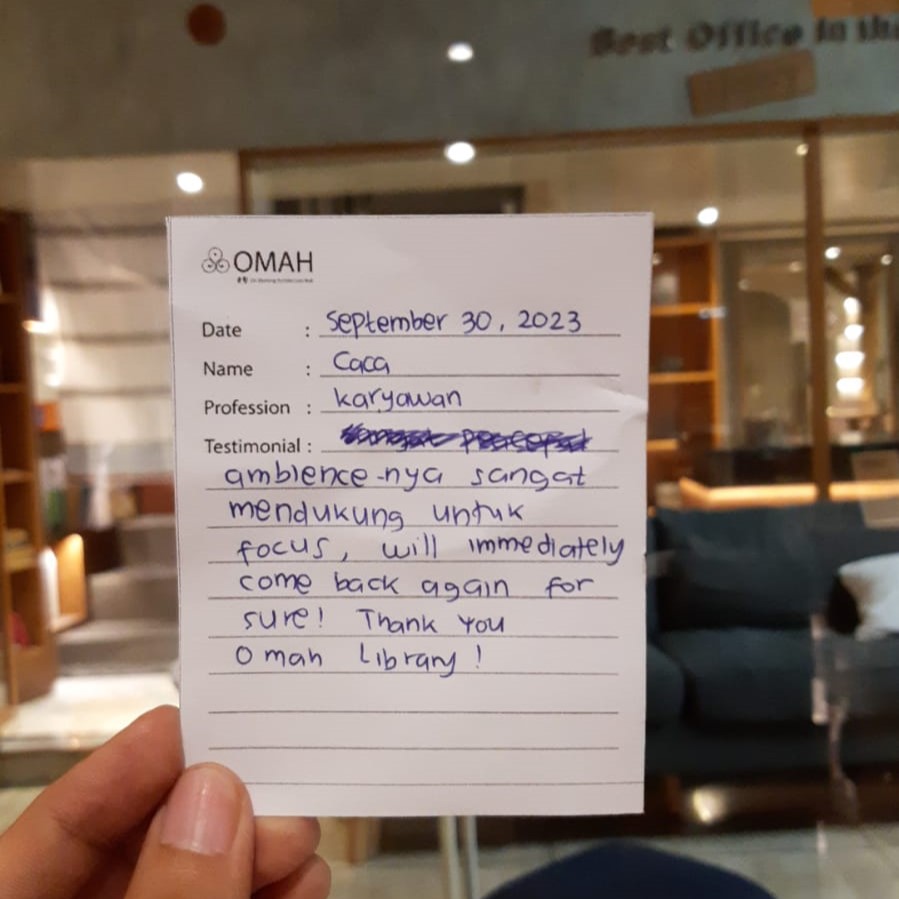 Best Office in the
OMAH
Date : September 30, 2023
Name : Caca
Profession : karyawan
Testimonial :
ambience-nya sangat
mendukung untuk
focus, will immediately
come back again for
sure! Thank you
Omah Library!